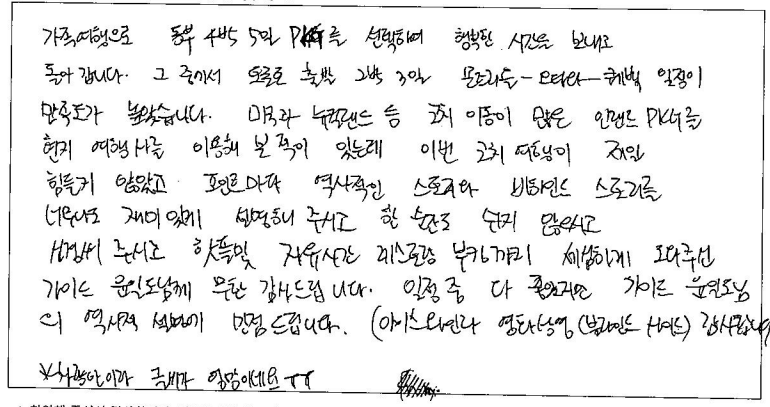 가족여행으로 동부 4박 5일 PKG를 선택하여 행복한 시간을 보내고
돌아 갑니다. 그 중에서 토론토 출발 2박 3일 몬트리올-오타와-퀘벡 일정이
만족도가 높았습니다. 미국과 뉴질랜드 등 코치 이동이 많은 인랜드 PKG를
현지 여행사를 이용해 본 적이 있는데 이번 코치 여행이 제일
힘들지 않았고 포인트마다 역사적인 스토리와 비하인드 스토리를
너무나도 재미있게 설명해 주시고 한 순간도 쉬지 않으시고
주시고 핫플및 자유시간 레스토랑 부킹까지 세심하게 도와주신
가이드 윤일도님께 무한 감사드립니다. 일정 중 다 좋았지만 가이드 윤일도님
의 역사적 설명에 만점 드립니다. (아이스와인과 사이드) 감사합니다